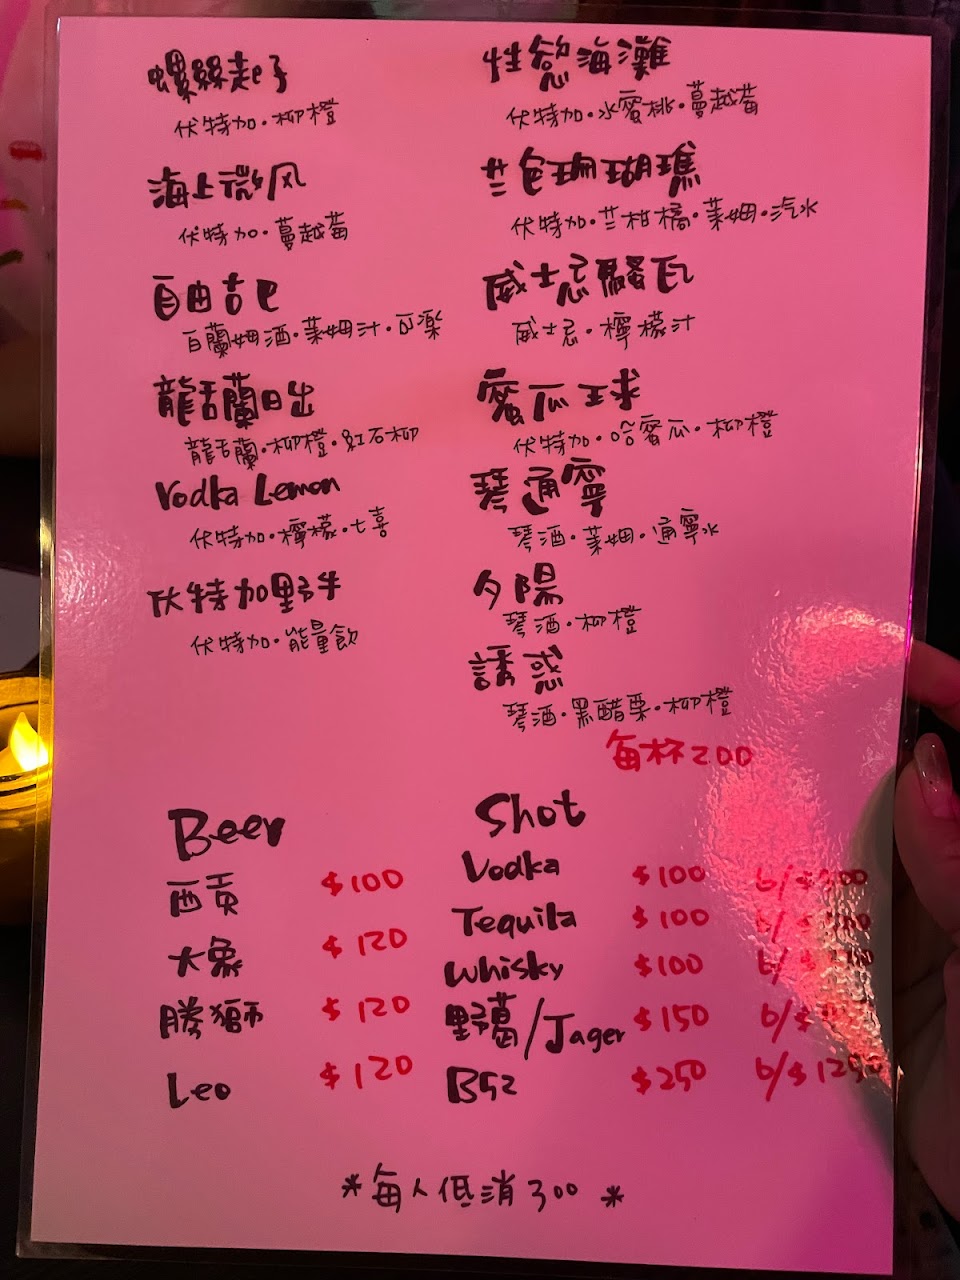 螺絲起子
伏特加·柳橙
海上微风
伏特加·蔓越莓
自由古巴
白蘭姆酒·萊姆汁·可樂
龍舌蘭日出
龍舌蘭·柳橙·紅石柳
Vodka Lemon
伏特加·檸檬·七喜
伏特加野牛
伏特加·能量飲
性慾海灘
伏特加·水蜜桃·蔓越莓
兰色珊瑚礁
伏特加·兰柑橘·萊姆·汽水
威士忌騷瓦
威士忌·檸檬汁
蜜瓜球
伏特加·哈蜜瓜·柳橙
琴通寧
琴酒·萊姆·通寧水
夕陽
琴酒·柳橙
誘惑
琴酒·黑醋栗·柳橙
每杯200
Beer
西貢 $100
大象 $120
勝獅 $120
Leo $120
Shot
Vodka $100 6/$
Tequila $100 6/$
Whisky $100 6/$
野葛/Jager $150 6/$
B52 $250 6/$1250
*每人低消300*